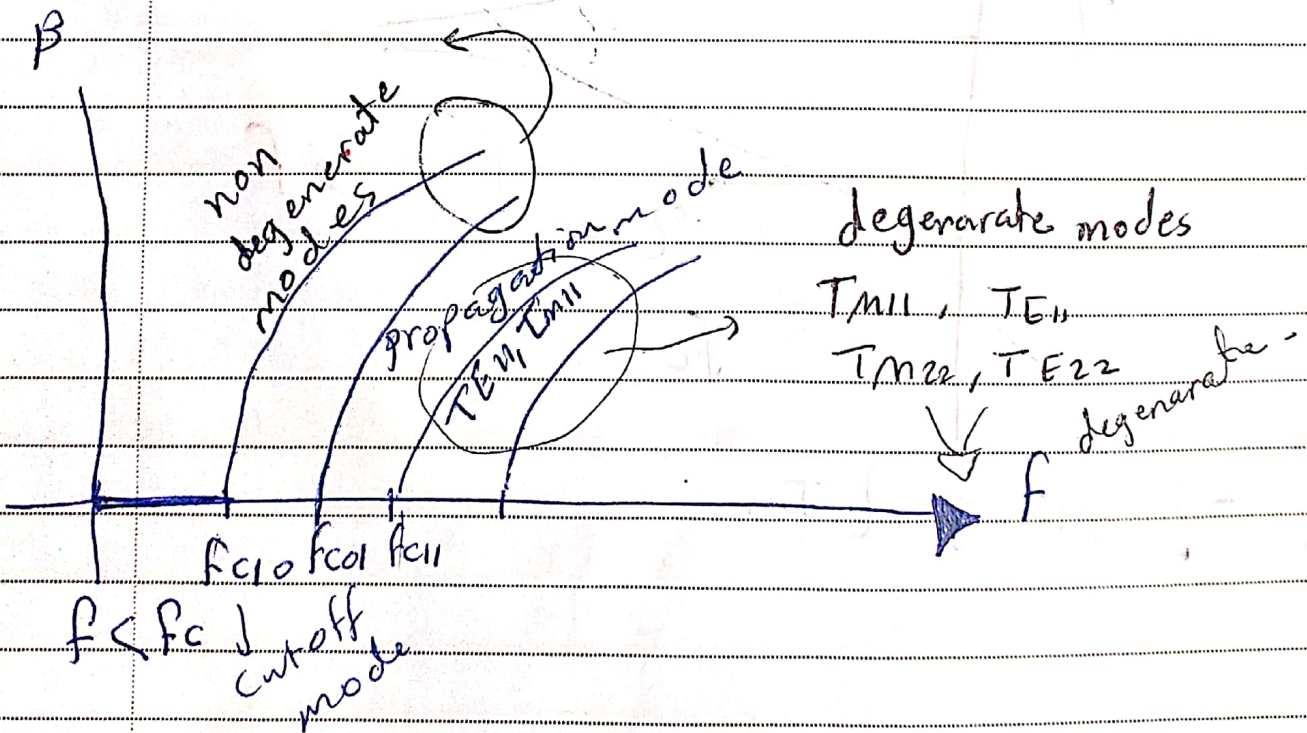 β
non
degenerate
modes
propagation mode
TE11, TM11
degenarate modes
TM11, TE11
TM22, TE22
degenarate
f
fc10 fc01 fc11
f < fc ↓
cutoff
mode